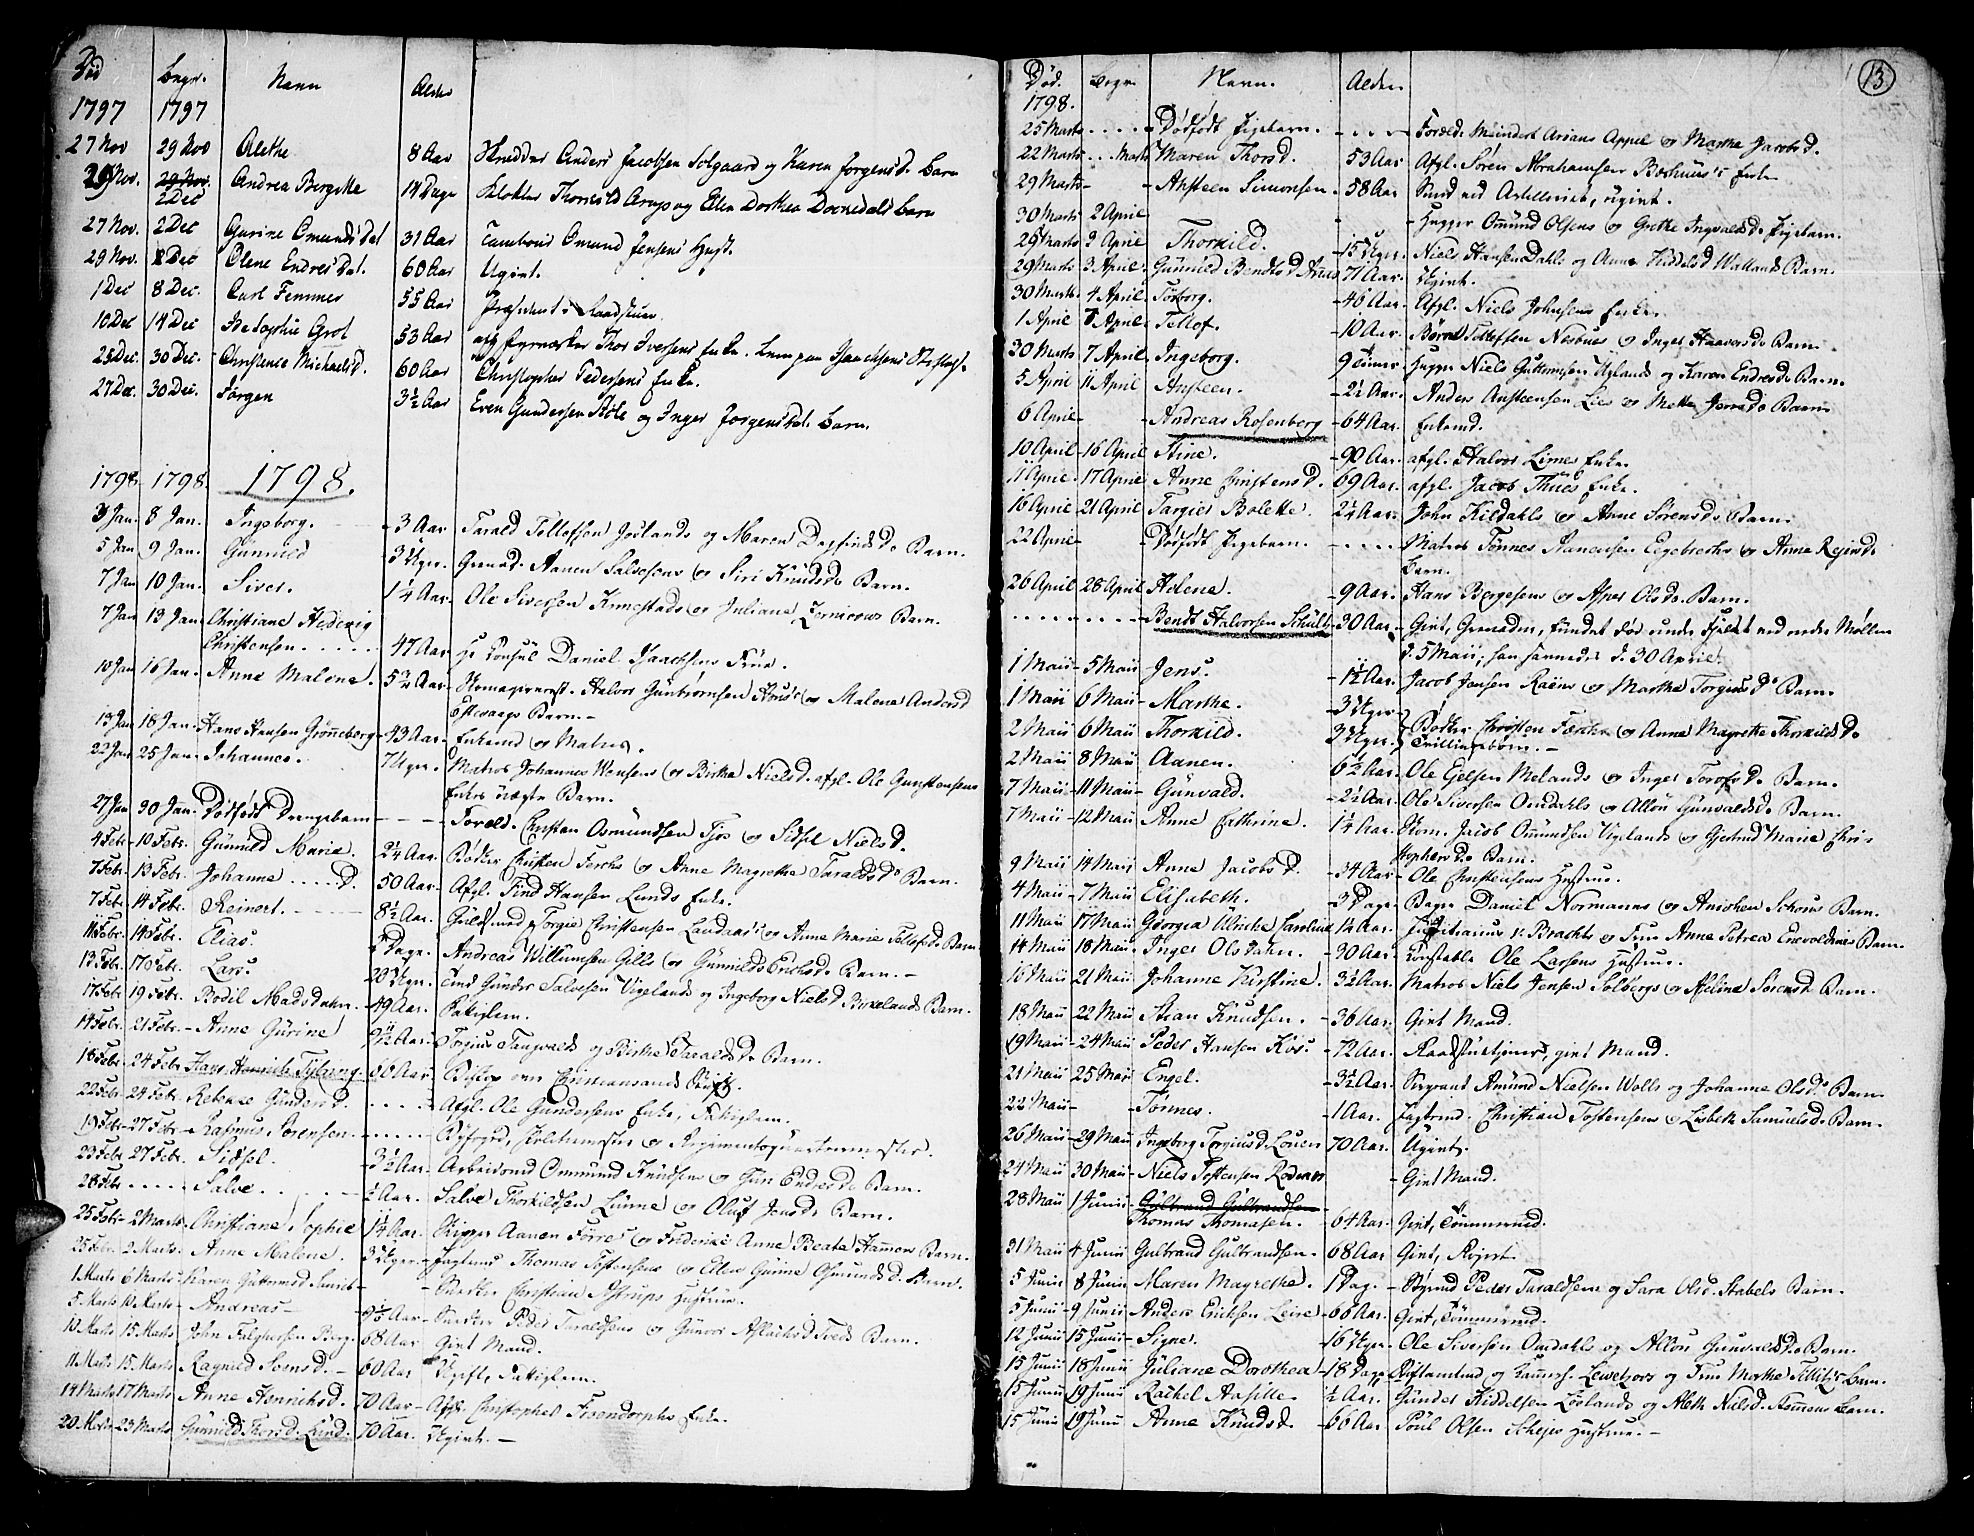 Død Begr. Navn Alder
1797 1797
27 Nov 29 Nov Alethe 8 Aar Skredder Anders Jacobsen Solgaard og Karen Jørgensd. Barn
29 Nov. 29 Nov. 2 Dec Andrea Bergitte 14 Dage Klokker Thorkild Arup og Ellen Dorthea Barn
27 Nov. 2 Dec Gurine Omunds dat 31 Aar Tambour Omund Jensens Hust.
29 Nov. 8 Dec Olene Endres Dat. 60 Aar Ugivt.
1 Dec 8 Dec. Carl Femmer 55 Aar Præsident i Raadstuen
10 Dec 14 Dec Grot 53 Aar afg. Thor Iversens Enke.
25 Dec. 30 Dec. Christence Michaelsd. 60 Aar Christopher Pedersens Enke.
27 Dec. 30 Dec. Jørgen 3½ Aar Even Gundersen og Inger Jørgensdat. Barn.
1798. 1798. 1798.
3 Jan. 8 Jan. Ingeborg. 3 Aar. Tarald Tellefsen Joslands og Maren Dagfinds D. Barn.
5 Jan 9 Jan. Gunnild 3 Uger. Grenad. Aanen Salvesens og Siri Knuds D. Barn.
7 Jan 10 Jan. Siver. 1¼ Aar. Ole Siversen Kinnestads og Juliane Zernicows Barn.
7 Jan 13 Jan. Christiane Hedevig
Christensen 47 Aar. Hr Consul Daniel Isaachsens Frue.
10 Jan 16 Jan. Anne Malene. 5½ Aar. Halvor Gunbiørnsen og Malene Anders D
Barn.
13 Jan 18 Jan. Hans Hansen Grønneborg 43 Aar. Enkemd og Matros.
22 Jan 25 Jan. Johannes. 7 Uger. Matros Johannes Wensens og Birthe Niels D. afgl. Ole Gunstensens
Enkes uægte Barn.
27 Jan 30 Jan. Dødfødt Drengebarn Foræld. Christen Osmundsen Tjøs og Sidsel Niels D.
4 Febr. 10 Febr. Gunnild Marie. 2¼ Aar. Bødker Christen Ferchs og Anne Magrethe Taralds D. Barn.
7 Febr. 13 Febr. Johanne D. 50 Aar. Afgl. Find Hansen Lunds Enke.
7 Febr 14 Febr. Reinert. 8½ Aar. Guldsmed Torgie Christensen Landaas's og Anne Marie Tellefs D. Barn
11 Febr. 14 Febr. Elias. Dage. Andreas Willumsen Gills og Gunnilds Erichs D. Barn.
13 Febr. 17 Febr. Lars. 20 Uger. Gunder Salvesen Vigelands og Ingeborg Niels D. Birkelands Barn.
17 Febr 19 Febr. Bodil Mads datter. 49 Aar. Fattiglem.
14 Febr. 21 Febr. Anne Gurine Aar. Torgius Tangvalds og Birthe Taralds D. Barn.
18 Febr. 24 Febr Hans Henrich Tybring 66 Aar. Biskop over Christiansands Stift.
22 Febr 24 Febr. Rebekke Gunders D. Afgl. Ole Gundersens Enke, Fattiglem.
19 Febr 27 Febr Rasmus Sørensen. Byfoged, og Regimentsqvarteermester.
23 Febr 27 Febr. Sidsel. 3½ Aar. Arbeidsmd Ommund Knudsens og Guri Endres D. Barn.
28 Febr. Salve. ½ Aar. Salve Thorkildsen Lunne og Oluf Jens D. Barn.
25 Febr. 2 Marts Christiane Sophie 1¼ Aar. Skipper Aanen Førres og Friderike Anne Beate Hammers Barn.
25 Febr. 2 Marts. Anne Malene. 3 Uger. Jagtmd Thomas Tostensens og Ellen Gurine Osmunds D. Barn.
1 Marts 6 Marts Karen Guttormsd Snedker Christian Astrups Hustrue.
5 Marts 10 Marts Andreas 3½ Aar Peder Taraldsens og Gunvor Aslachs D. Tveds Barn.
10 Marts. 15 Marts John Falchersen Berg 68 Aar Givt Mand.
11 Marts 15 Marts Ragnild Svensd. 60 Aar Ugift, Fattiglem.
14 Marts 17 Marts Anne Henrichs D. 70 Aar Afgl. Christopher Enke.
20 Marts 23 Marts Gunnild Thors D. Lund. 70 Aar. Ugivt.
Død. Begr. Navn. Alder. 13
1798.
25 Marts Dødfødt Pigebarn. Foræld. Meindert Arians Appel og Marthe Jacobs D.
22 Marts Marts Maren Thors D. 53 Aar Afgl. Søren Abrahamsen Enke
29 Marts Ansteen Simonsen 58 Aar Smed ved Artilleriet, ugivt.
30 Marts 2 April Hugger Omund Olsens og Grethe Ingvalds D. Pigebarn.
29 Marts 2 April Thorkild. 15 Uger. Niels Hansen Dahls og Anne Kiddelsd Wallands Barn.
29 Marts 3 April. Gunnild Bends D. 71 Aar. Ugivt.
30 Marts. 4 April. Torborg. 46 Aar. Afgl. Niels Johnsens Enke.
1 April 6 April. Tellof. 10 Aar. Børre Tellefsen Nesbues og Inger Haavers D. Barn.
30 Marts 7 April Ingeborg. 9 Timer. Hugger Niels Guttormsen Uglands og Karen Endres D. Barn.
5 April 11 April Ansteen. 2½ Aar. Anders Ansteensen Lies og Mette Jens D. Barn
6 April Andreas Rosenberg 64 Aar. Enkemd.
10 April 16 April Stine. 90 Aar. afgl. Halvor Limes Enke.
11 April 17 April Anne Christens D. 69 Aar. afgl. Jacob Thues Enke.
16 April 21 April Targier Bolette. 2¼ Aar. John Kildahls og Anne Sørens D. Barn.
22 April Dødfødt Pigebarn. Matros Tønnes Aanensen Eegebrechs og Anne Reiers D.
Barn.
26 April 28 April Helene. 9 Aar. Hans Børgesens og Asper Ols D. Barn.
Bendt Halvorsen Schult 30 Aar. Givt, Grenader, fundet død under Fjeldet ved nedre Møllen
d. 5 Maii; han savnedes d. 30 April.
1 Maii 5 Maii Jens. 1½ Aar. Jacob Jensen Raëns og Marthe Torgius D. Barn.
1 Maii 6 Maii Marthe. 3 Uger
2 Maii 6 Maii Thorkild. 3 Uger. Bødker Christen Ferchs og Anne Magrethe Thorkilds D.
Tvillingebørn.
2 Maii 8 Maii Aanen. 6½ Aar. Ole Eyelsen Melands og Inger Torofs D. Barn.
7 Maii 11 Maii Gunvald. 2½ Aar. Ole Siversen Omdahls og Allou Gunvalds D. Barn.
7 Maii 12 Maii Anne Cathrine. 1¼ Aar. Kom. Jacob Ommundsen Vigelands og Gjertrud Marie Chri-
stophers D. Barn.
9 Maii 14 Maii Anne Jacobs D. 34 Aar Ole Christensens Hustrue.
4 Maii 7 Maii Elisabeth. 3 Dage. Bager Daniel Normanns og Anichen Schous Barn.
11 Maii 17 Maii Georgia Ulriche Caroline 1¼ Aar. Justitiarius v. Brachts og Frue Anne Petrea Enevoldsens Barn.
14 Maii 18 Maii Inger Ols Datter. 30 Aar. Constable Ole Larsens Hustrue.
16 Maii 21 Maii Johanne Kirstine. 3½ Aar. Matros Niels Jensen Solbergs og Aseline Sørens D. Barn.
18 Maii 22 Maii Stian Knudsen. 36 Aar. Givt Mand.
19 Maii 24 Maii Peder Hansen Kos. 72 Aar. Raadstuetjener, givt Mand.
21 Maii 25 Maii Engel. 3½ Aar. Sergeant Amund Nielsen Wolls og Johanne Ols D. Barn.
22 Maii Tønnes. 1 Aar. Jagtmd. Christian Tostensens og Lisbeth Samuels D. Barn.
26 Maii 29 Maii Ingeborg Torgius D. Louen 70 Aar. Ugivt.
24 Maii 30 Maii Niels Tostensen Givt Mand.
28 Maii 1 Junii Gulbrand Gulbrandsen
Thomas Thomasen. 64 Aar. Givt, Tømmermd.
31 Maii 4 Junii Gulbrand Gulbrandsen. 68 Aar Givt, Rejert.
5 Junii 8 Junii Maren Magrethe. 1 Dag. Peder Taraldsens og Sara Ols D. Stabels Barn.
5 Junii 9 Junii Anders Erichsen Leire 66 Aar. Givt, Tømmermd.
12 Junii 15 Junii Signe. 16 Uger. Ole Siversen Omdahls og Allou Gunvalds D. Barn.
15 Junii 18 Junii Juliane Dorothea 18 Dage Stiftamtmd og Kammerh. Levetzovs og Frue Marthe Tellitz's Barn.
15 Junii 19 Junii Rachel Aasille ½ Aar. Gunder Kiddelsen Løslands og Aleth Nielsd. Barn.
15 Junii 19 Junii Anne Knuds D. 66 Aar Poul Olsen Schejes Hustrue.